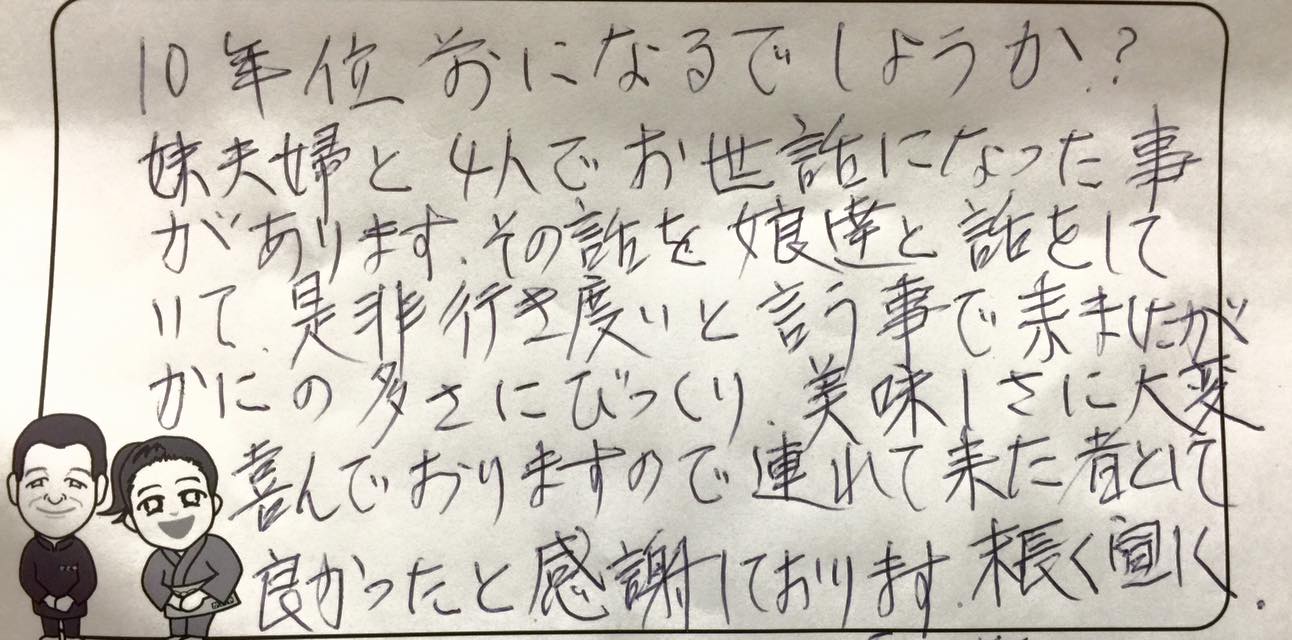 10年位前になるでしょうか?
妹夫婦と4人でお世話になった事
があります。その話を娘達と話をして
いて、是非行き度いと言う事で来ましたが
かにの多さにびっくり、美味しさに大変
喜んでおりますので連れて来た者として
良かったと感謝しております。末長く宜しく。